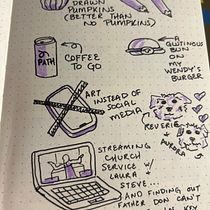 DRAWN PUMPKINS
(BETTER THAN
NO PUMPKINS)
PATH
COFFEE
TO GO
A
GLUTINOUS
BUN
ON
MY
WENDY'S
BURGER
ART INSTEAD OF
SOCIAL
MEDIA
REVERIE
+
AURORA
STREAMING
CHURCH
SERVICE W/
LAURA +
STEVE...
AND FINDING OUT
FATHER DON CAN'T
IN KEY